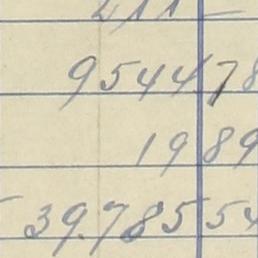 9544.78
1989
39.785 54